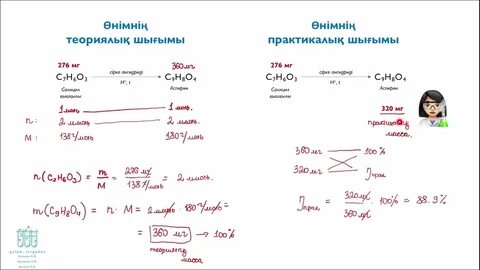 Өнімнің
теориялық шығымы
276 мг
360 мг
C₇H₆O₃
сірке ангидриді
H⁺, t
C₉H₈O₄
Салицил
қышқылы
Аспирин
1 моль
1 моль
n:
2 ммоль
2 ммоль
M:
138 г/моль
180 г/моль
n(C₇H₆O₃) = m/M = 276 мг/138 г/моль = 2 ммоль.
m(C₉H₈O₄) = n · M = 2 ммоль · 180 г/моль =
= 360 мг → 100%
теориялық
масса
Өнімнің
практикалық шығымы
276 мг
C₇H₆O₃
сірке ангидриді
H⁺, t
C₉H₈O₄
Салицил
қышқылы
Аспирин
320 мг
практикалық
масса.
360 мг
100%
320 мг
η прак
η прак = 320 мг/360 мг · 100% = 88.9%